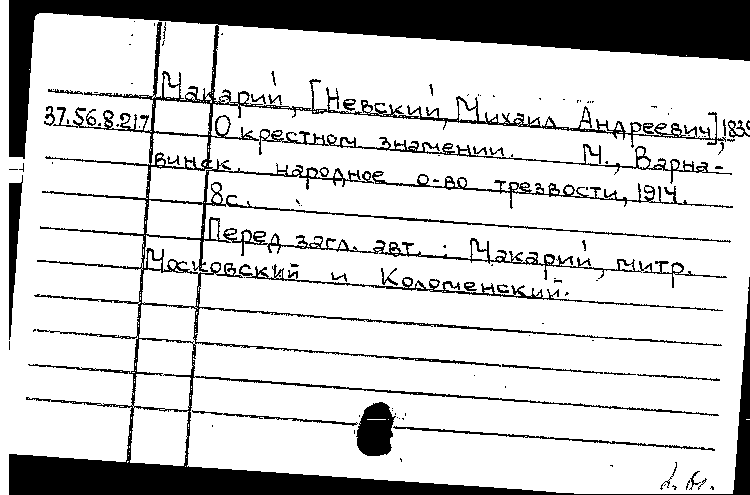 Макарий, [Невский, Михаил Андреевич], 1835
37.56.8.217 О крестном знамении. М., Варна-
винск. народное о-во трезвости, 1914.
8с.
Перед загл. авт.: Макарий, митр.
Московский и Коломенский.